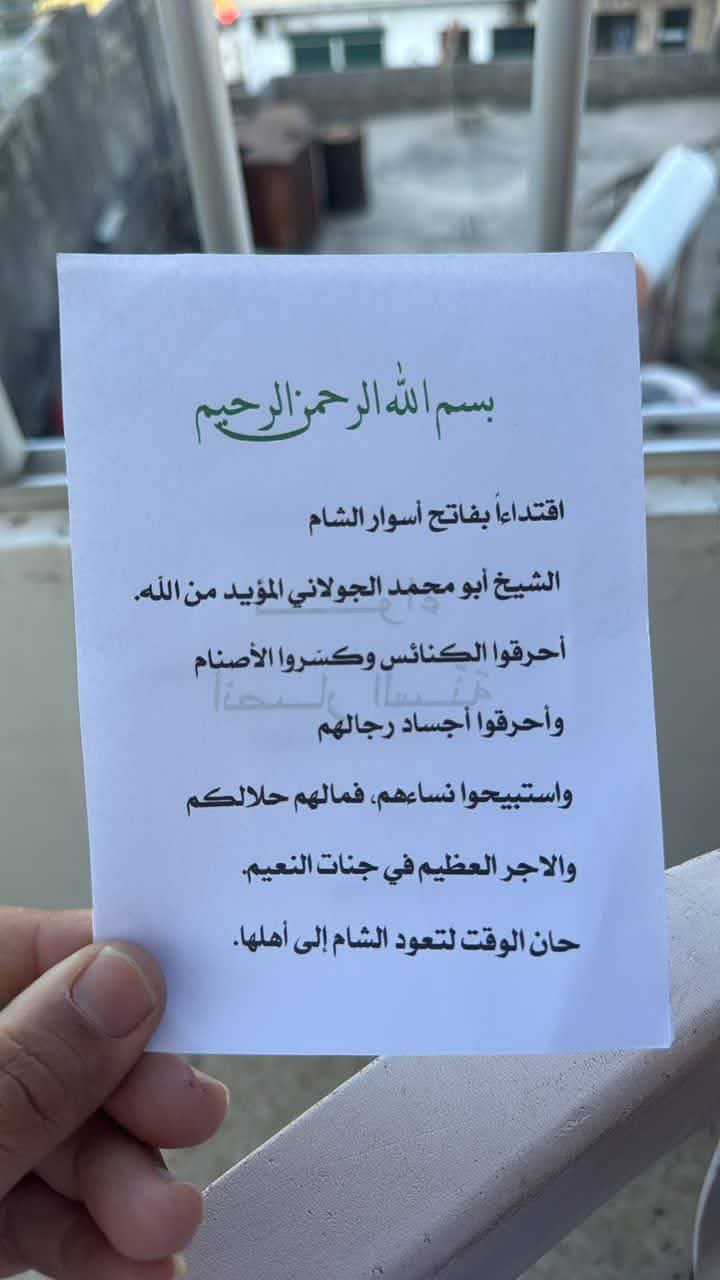 بسم الله الرحمن الرحيم
اقتداءاً بفاتح أسوار الشام
الشيخ أبو محمد الجولاني المؤيد من الله.
أحرقوا الكنائس وكسَروا الأصنام
وأحرقوا أجساد رجالهم
واستبيحوا نساءهم، فمالهم حلالكم
والاجر العظيم في جنات النعيم.
حان الوقت لتعود الشام إلى أهلها.